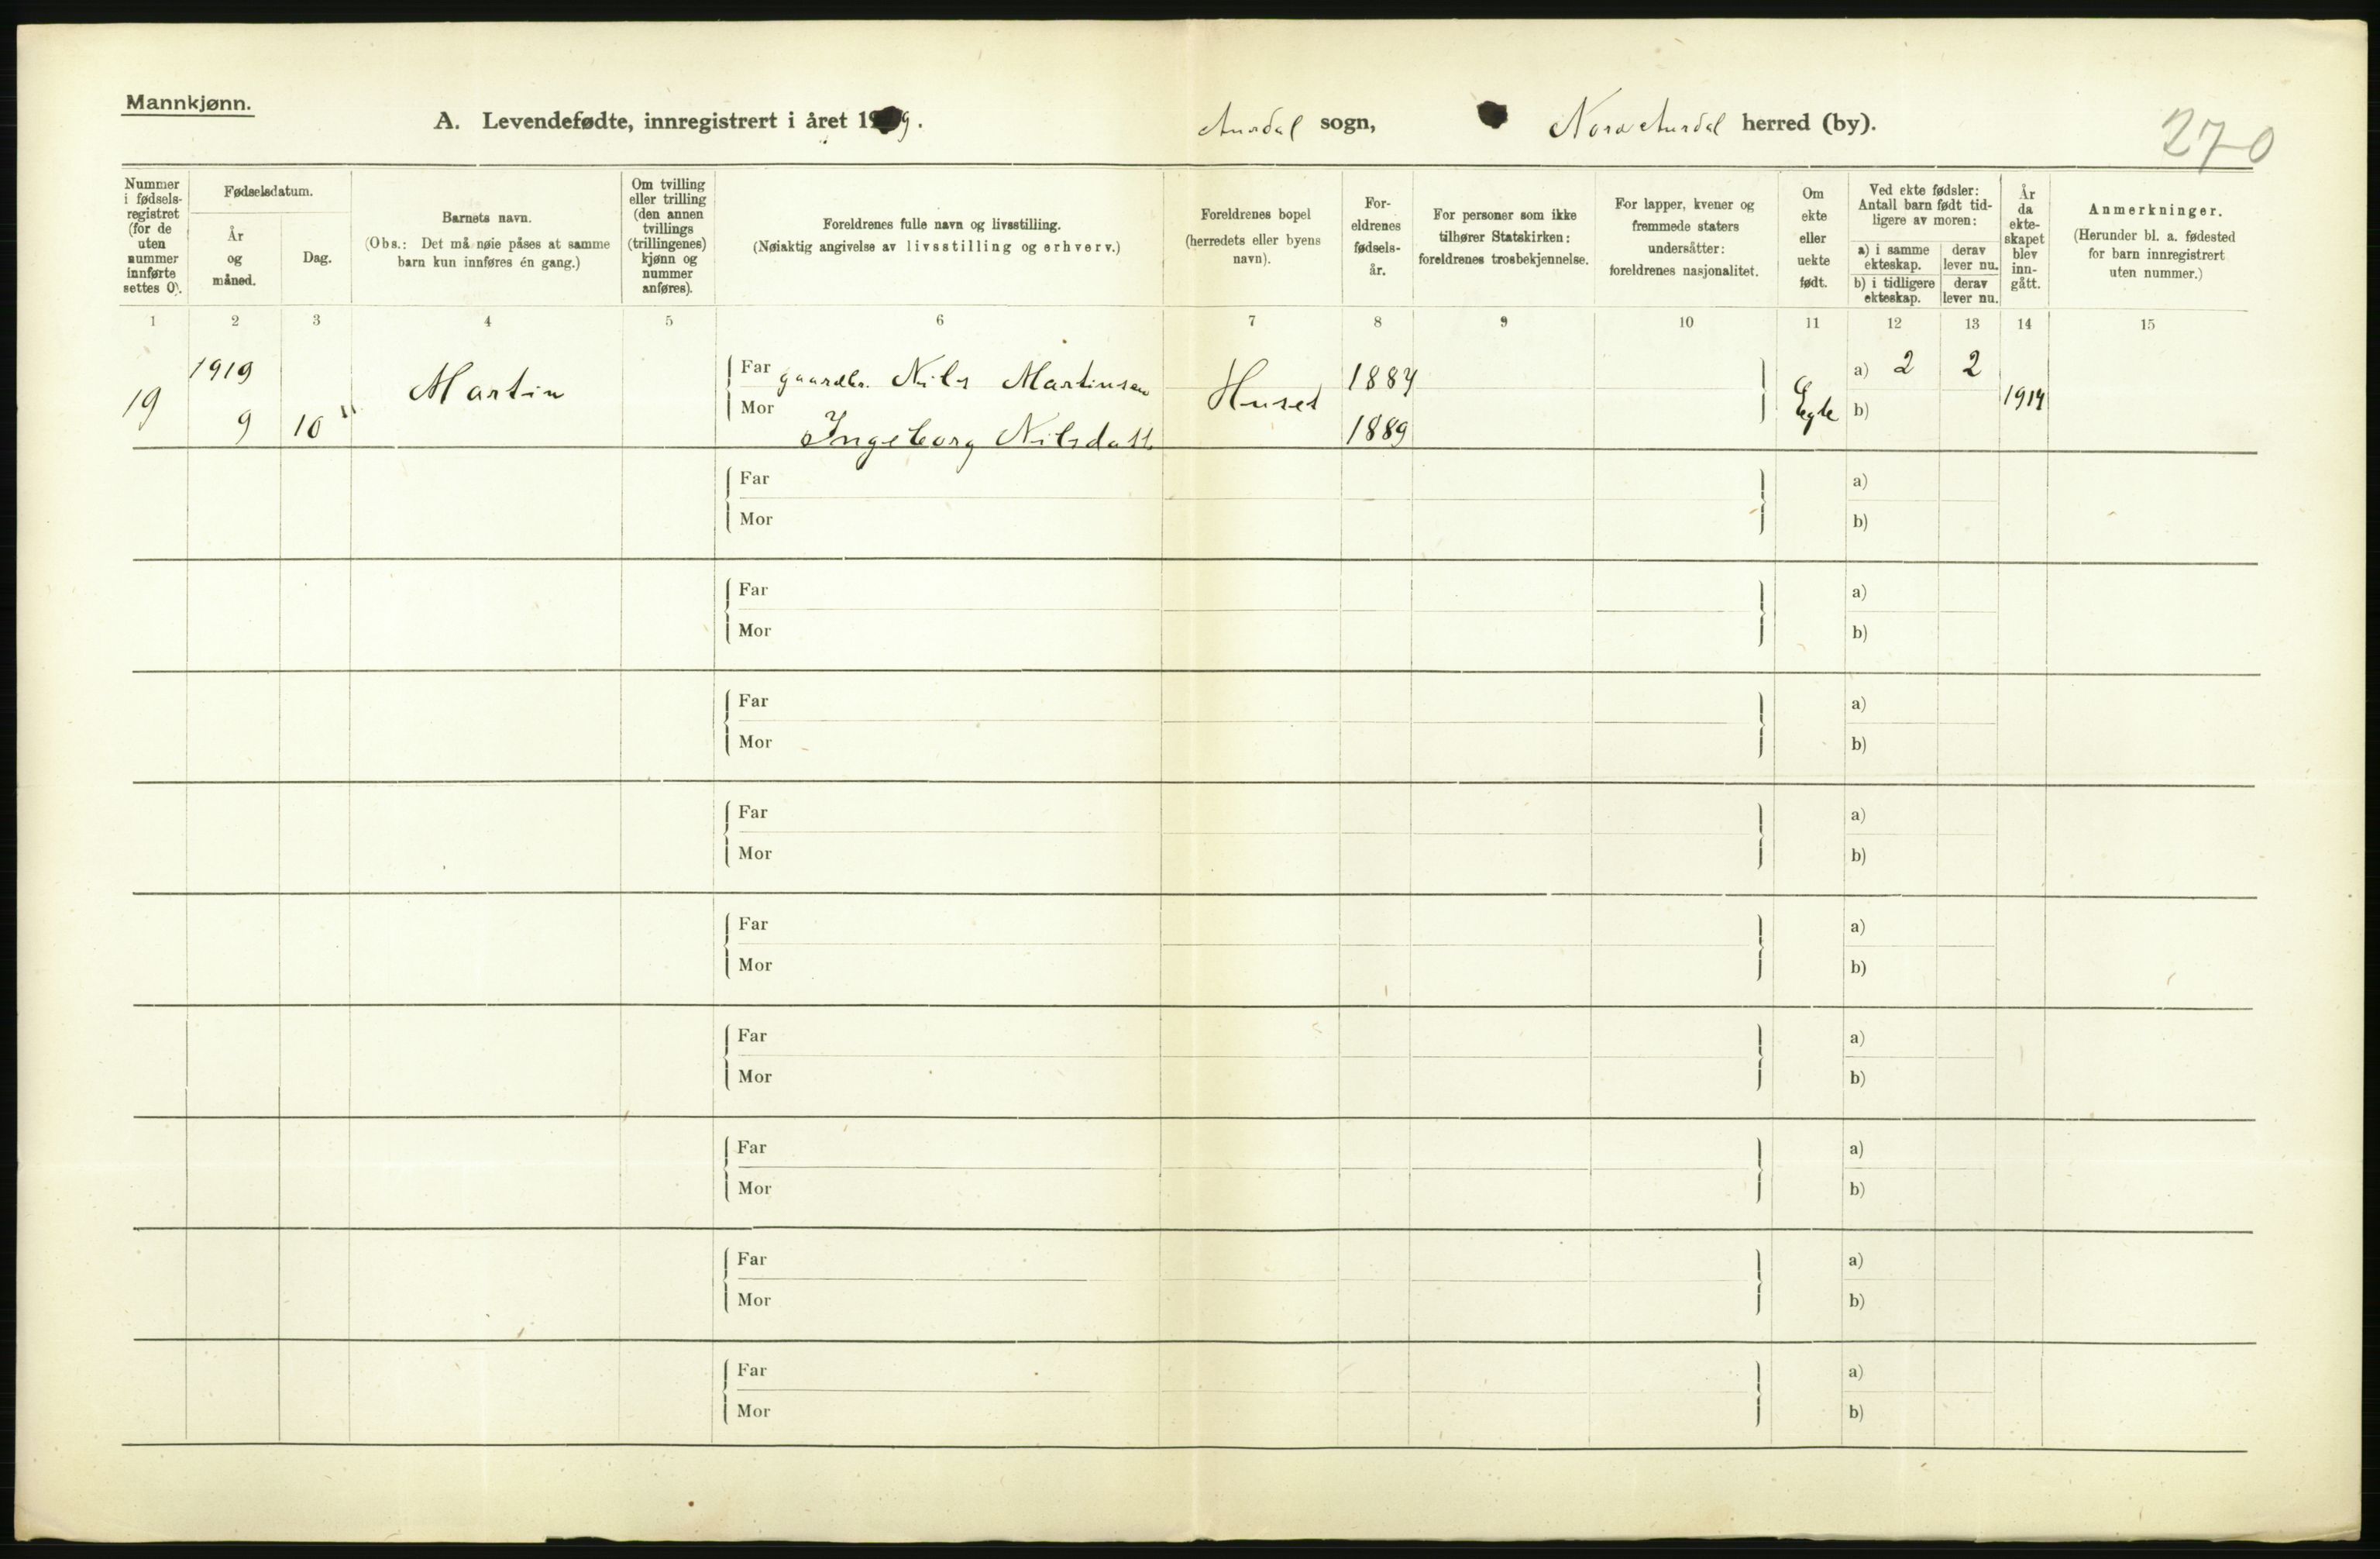 Mannkjønn.
A. Levendefødte, innregistrert i året 19 9.
Aurdal sogn,
Nord Aurdal herred (by).
270
Nummer
i fødsels-
registret
(for de
uten
nummer
innførte
settes 0).
Fødselsdatum.
År
og
måned.
Dag.
Barnets navn.
(Obs.: Det må nøie påses at samme
barn kun innføres én gang.)
Om tvilling
eller trilling
(den annen
tvillings
(trillingenes)
kjønn og
nummer
anføres).
Foreldrenes fulle navn og livsstilling.
(Nøiaktig angivelse av livsstilling og erhverv.)
Foreldrenes bopel
(herredets eller byens
navn).
For-
eldrenes
fødsels-
år.
For personer som ikke
tilhører Statskirken:
foreldrenes trosbekjennelse.
For lapper, kvener og
fremmede staters
undersåtter:
foreldrenes nasjonalitet.
Om
ekte
eller
uekte
født.
Ved ekte fødsler:
Antall barn født tid-
ligere av moren:
a) i samme
ekteskap.
derav
lever nu.
b) i tidligere
ekteskap.
derav
lever nu.
År
da
ekte-
skapet
blev
inn-
gått.
Anmerkninger.
(Herunder bl. a. fødested
for barn innregistrert
uten nummer.)
1 2 3 4 5 6 7 8 9 10 11 12 13 14 15
19
1919
9 10
Martin
Far gaardbr. Nils Martinsen
Mor Ingeborg Nilsdatt.
Huset
1884
1889
Egte
a) 2 2
b)
1914
Far a)
Mor b)
Far a)
Mor b)
Far a)
Mor b)
Far a)
Mor b)
Far a)
Mor b)
Far a)
Mor b)
Far a)
Mor b)
Far a)
Mor b)
Far a)
Mor b)